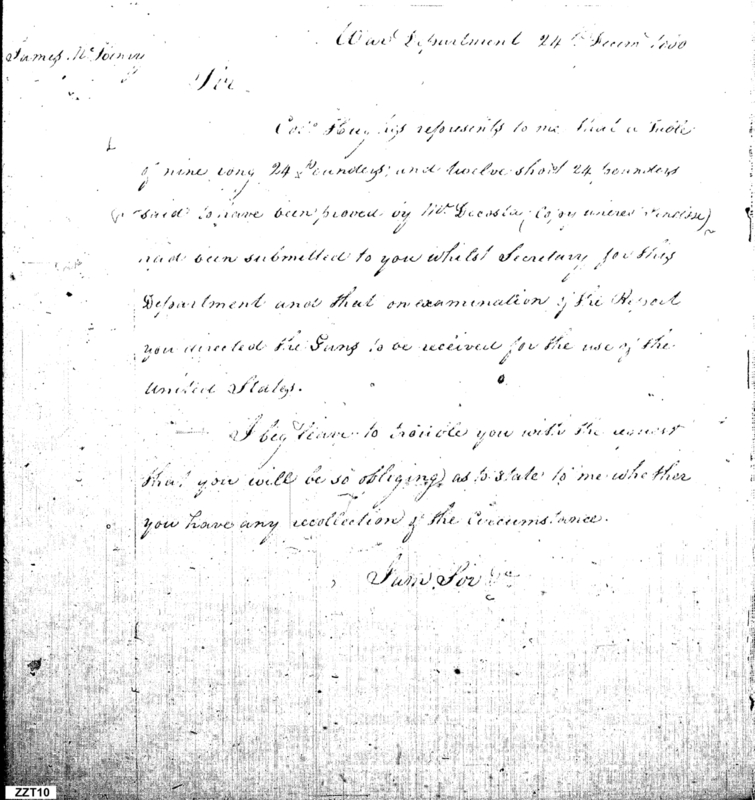 War Department 24th Decemr 1800
James McHenry
Sir
Colo Hughes represents to me that a Table
of nine long 24 Pounders; and twelve short 24 pounders
said to have been proved by Mr. Decosta, (Copy
had been submitted to you whilst Secretary for this
Department and that on examination of the Report
you directed the Guns to be received for the use of the
United States.
I beg leave to trouble you with the request
that you will be so obliging as to state to me whether
you have any recollection of the Circumstance.
I am, Sir &c
ZZT10